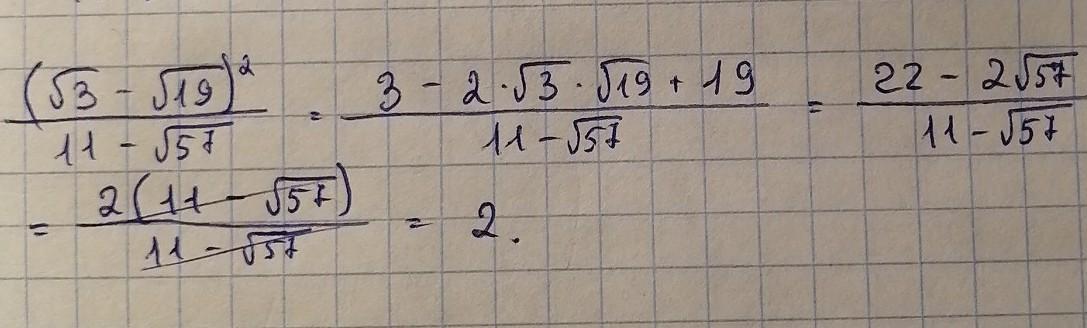 (√3 - √19)² / (11 - √57) = (3 - 2·√3·√19 + 19) / (11 - √57) = (22 - 2√57) / (11 - √57)
= 2(11 - √57) / (11 - √57) = 2.